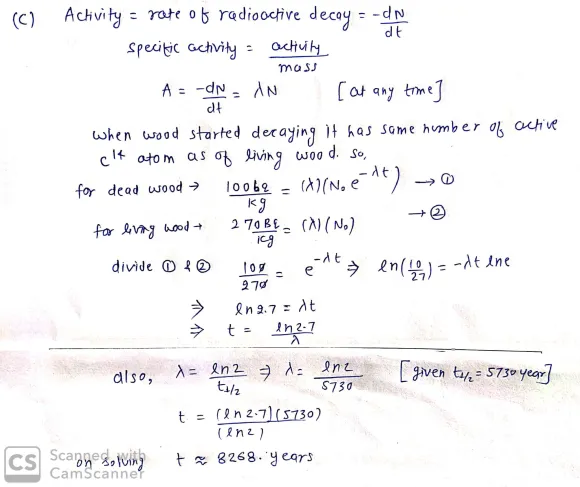 (C) Activity = rate of radioactive decay = -dN/dt
specific activity = activity/mass
A = -dN/dt = λN [at any time]
when wood started decaying it has same number of active
C14 atom as of living wood. so,
for dead wood → 100bq/kg = (λ)(N₀ e^-λt) → ①
for living wood → 270Bq/kg = (λ)(N₀) → ②
divide ① & ② 100/270 = e^-λt ⇒ ln(10/27) = -λt lne
⇒ ln2.7 = λt
⇒ t = ln2.7/λ
also, λ = ln2/t1/2 ⇒ λ = ln2/5730 [given t1/2 = 5730 year]
t = (ln2.7)(5730)/(ln2)
on solving t ≈ 8268. years
CS Scanned with
CamScanner